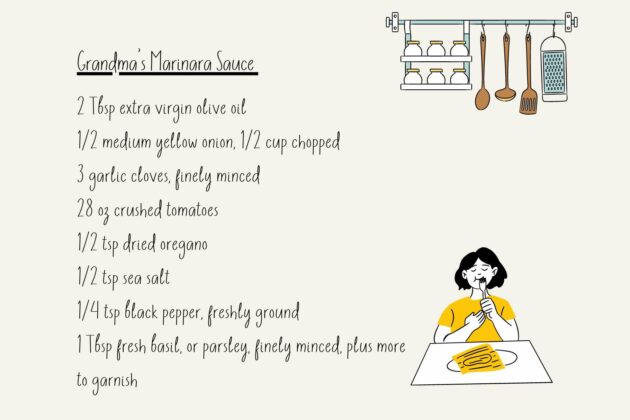 Grandma's Marinara Sauce
2 Tbsp extra virgin olive oil
1/2 medium yellow onion, 1/2 cup chopped
3 garlic cloves, finely minced
28 oz crushed tomatoes
1/2 tsp dried oregano
1/2 tsp sea salt
1/4 tsp black pepper, freshly ground
1 Tbsp fresh basil, or parsley, finely minced, plus more
to garnish